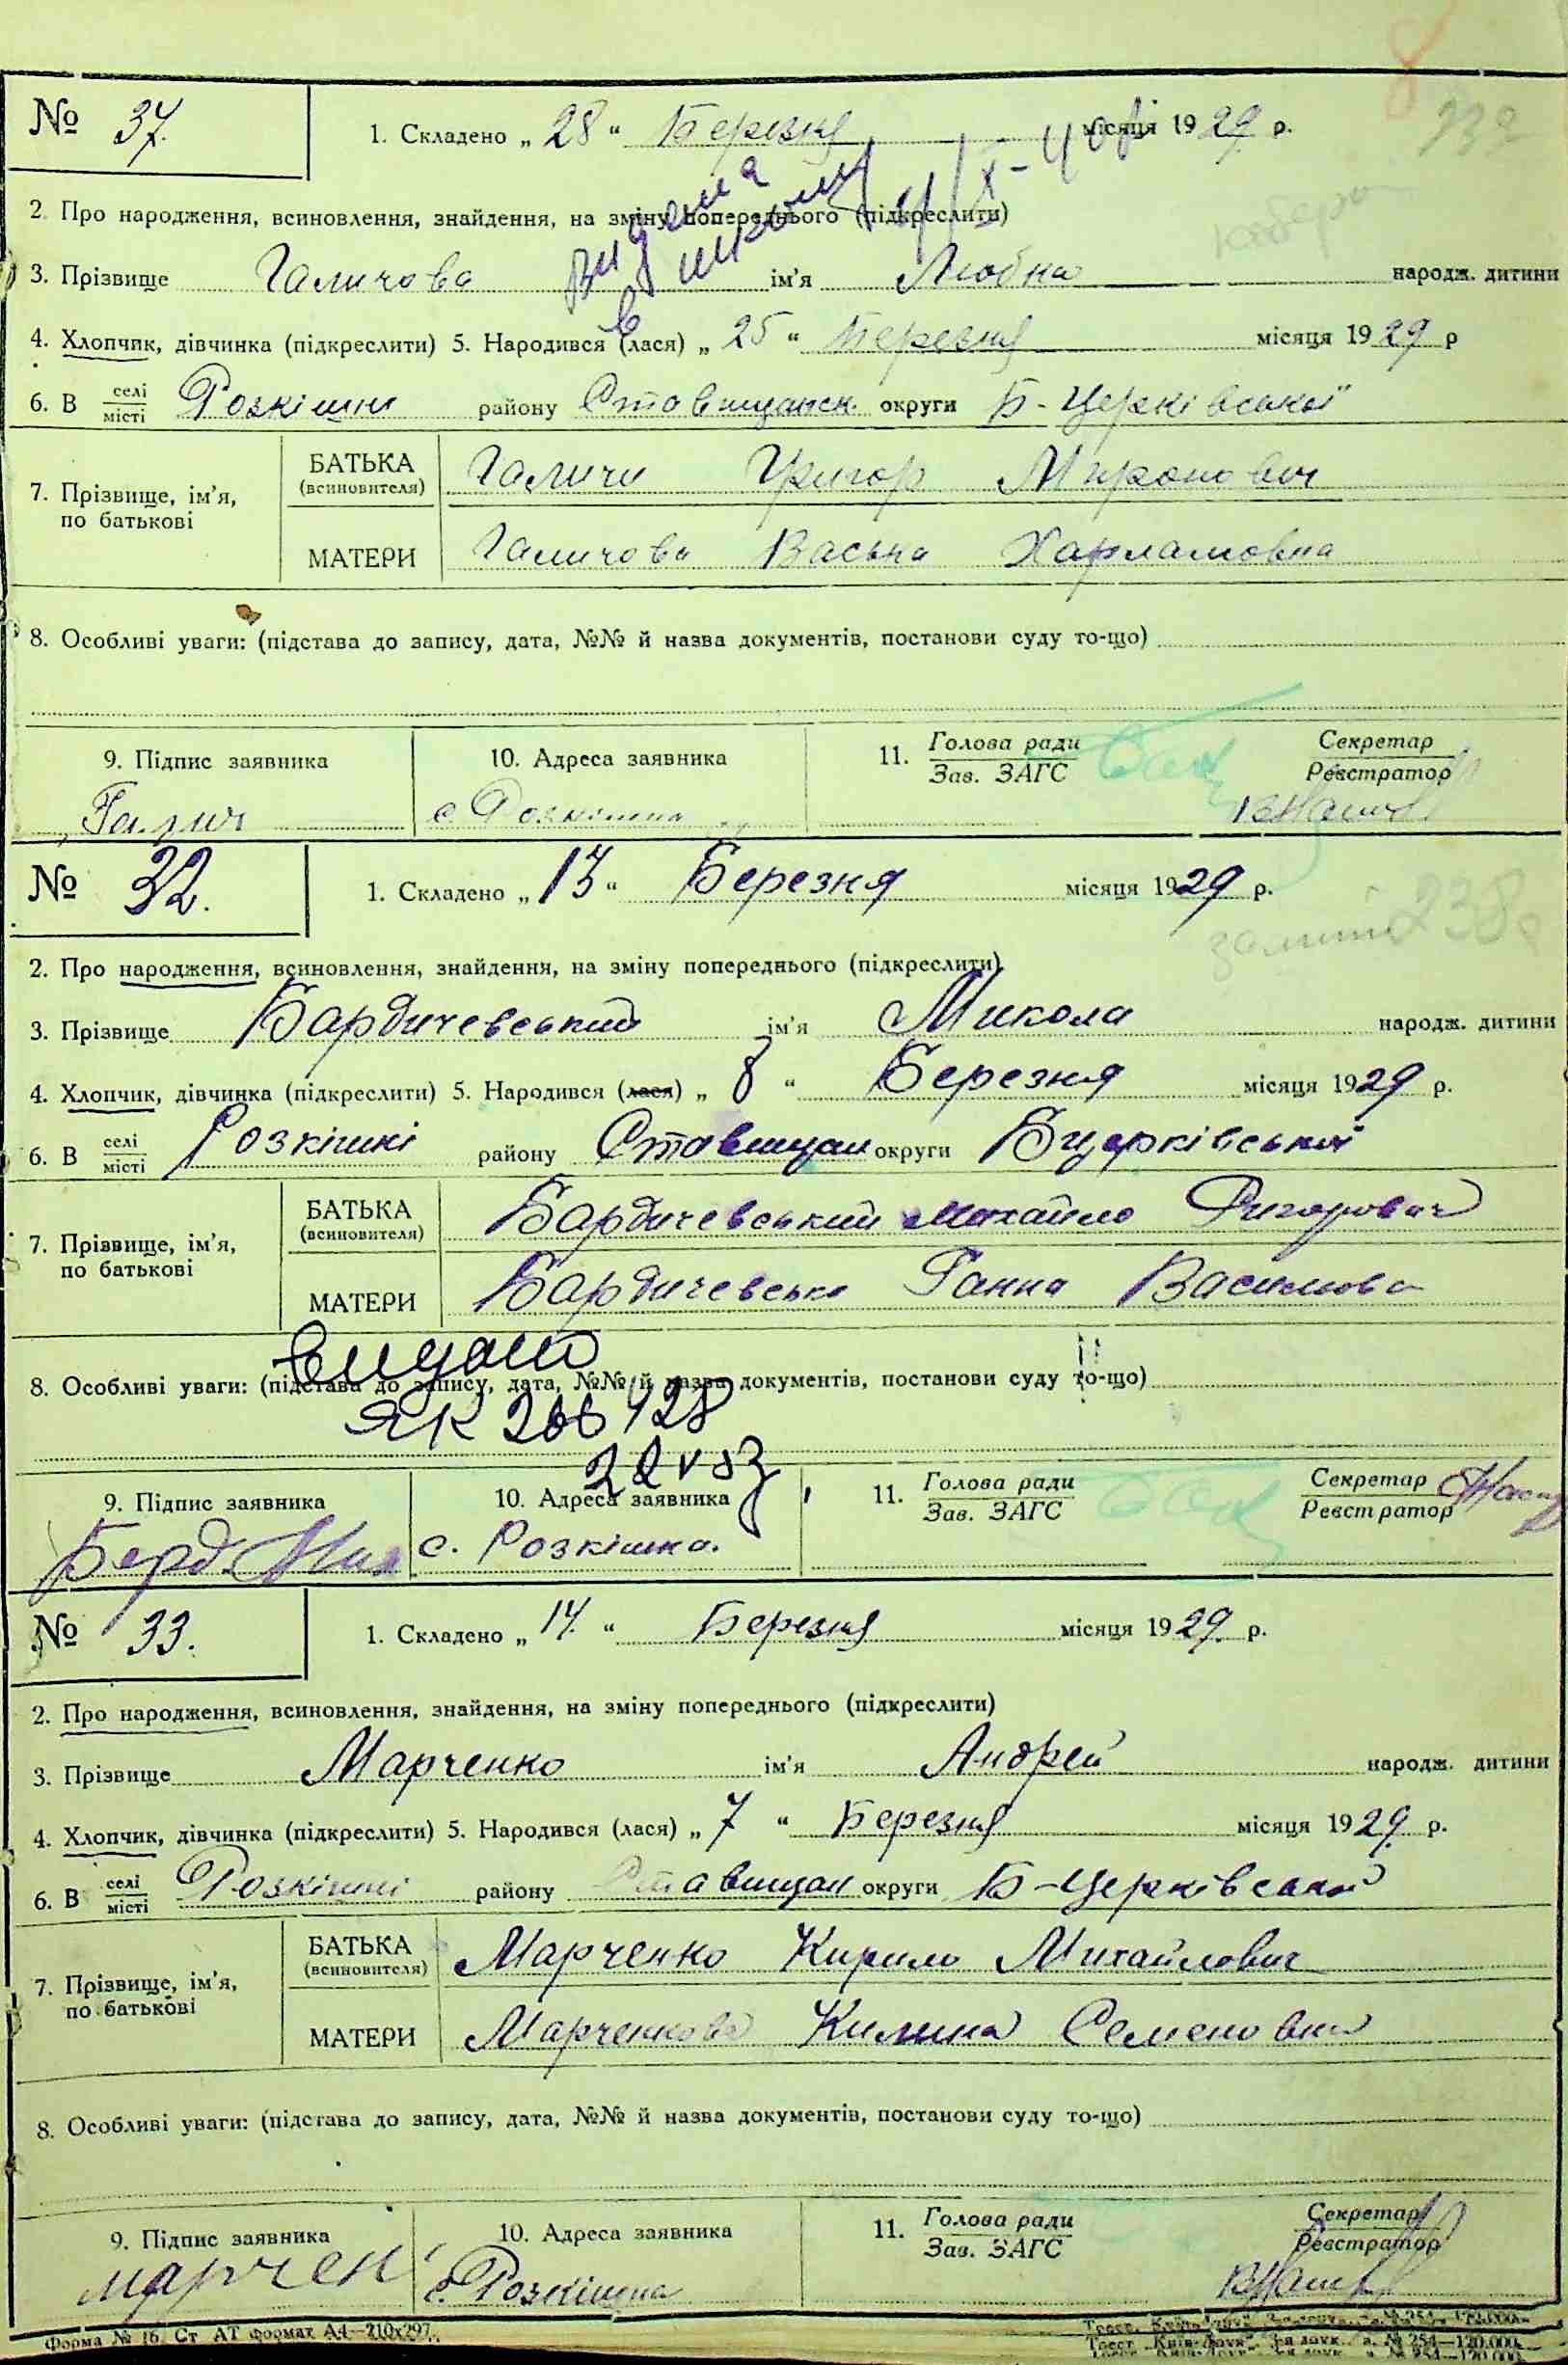 № 37. 1. Складено „ 28 “ Березня місяця 1929 р.
2. Про народження, всиновлення, знайдення, на зміну попереднього (підкреслити)
видана в школу
3. Прізвище Галичова ім'я Любка народж. дитини
4. Хлопчик, дівчинка (підкреслити) 5. Народився (лася) „ 25 “ Березня місяця 1929 р
6. В селі/місті Розкішни району Ставищанск. округи Б-Церківської
7. Прізвище, ім'я, по батькові
БАТЬКА (всиновителя) Галичи Григор Миронович
МАТЕРИ Галичова Васька Харламовна
8. Особливі уваги: (підстава до запису, дата, №№ й назва документів, постанови суду то-що)
9. Підпис заявника 10. Адреса заявника 11. Голова ради/Зав. ЗАГС Секретар/Реєстратор
Галич с. Розкішна
№ 32. 1. Складено „ 13 “ Березня місяця 1929 р.
238
2. Про народження, всиновлення, знайдення, на зміну попереднього (підкреслити)
3. Прізвище Бардичевський ім'я Микола народж. дитини
4. Хлопчик, дівчинка (підкреслити) 5. Народився (лася) „ 8 “ Березня місяця 1929 р.
6. В селі/місті Розкішкі району Ставищан округи Бцерківської
7. Прізвище, ім'я, по батькові
БАТЬКА (всиновителя) Бардичевський Михайло Григорович
МАТЕРИ Бардичевська Ганна Василова
8. Особливі уваги: (підстава до запису, дата, №№ й назва документів, постанови суду то-що)
ЯК 266428
9. Підпис заявника 10. Адреса заявника 11. Голова ради/Зав. ЗАГС Секретар/Реєстратор
Берд. с. Розкішна.
№ 33. 1. Складено „ 14. “ Березня місяця 1929. р.
2. Про народження, всиновлення, знайдення, на зміну попереднього (підкреслити)
3. Прізвище Марченко ім'я Андрей народж. дитини
4. Хлопчик, дівчинка (підкреслити) 5. Народився (лася) „ 7 “ Березня місяця 1929. р.
6. В селі/місті Розкішні району Ставищан округи Б-Церківської
7. Прізвище, ім'я, по батькові
БАТЬКА (всиновителя) Марченко Кирило Михайлович
МАТЕРИ Марченкова Килина Семеновна
8. Особливі уваги: (підстава до запису, дата, №№ й назва документів, постанови суду то-що)
9. Підпис заявника 10. Адреса заявника 11. Голова ради/Зав. ЗАГС Секретар/Реєстратор
Марчен с. Розкішна
Форма № 16. Ст АТ формат А4—210х297.
№ 254—120.000.